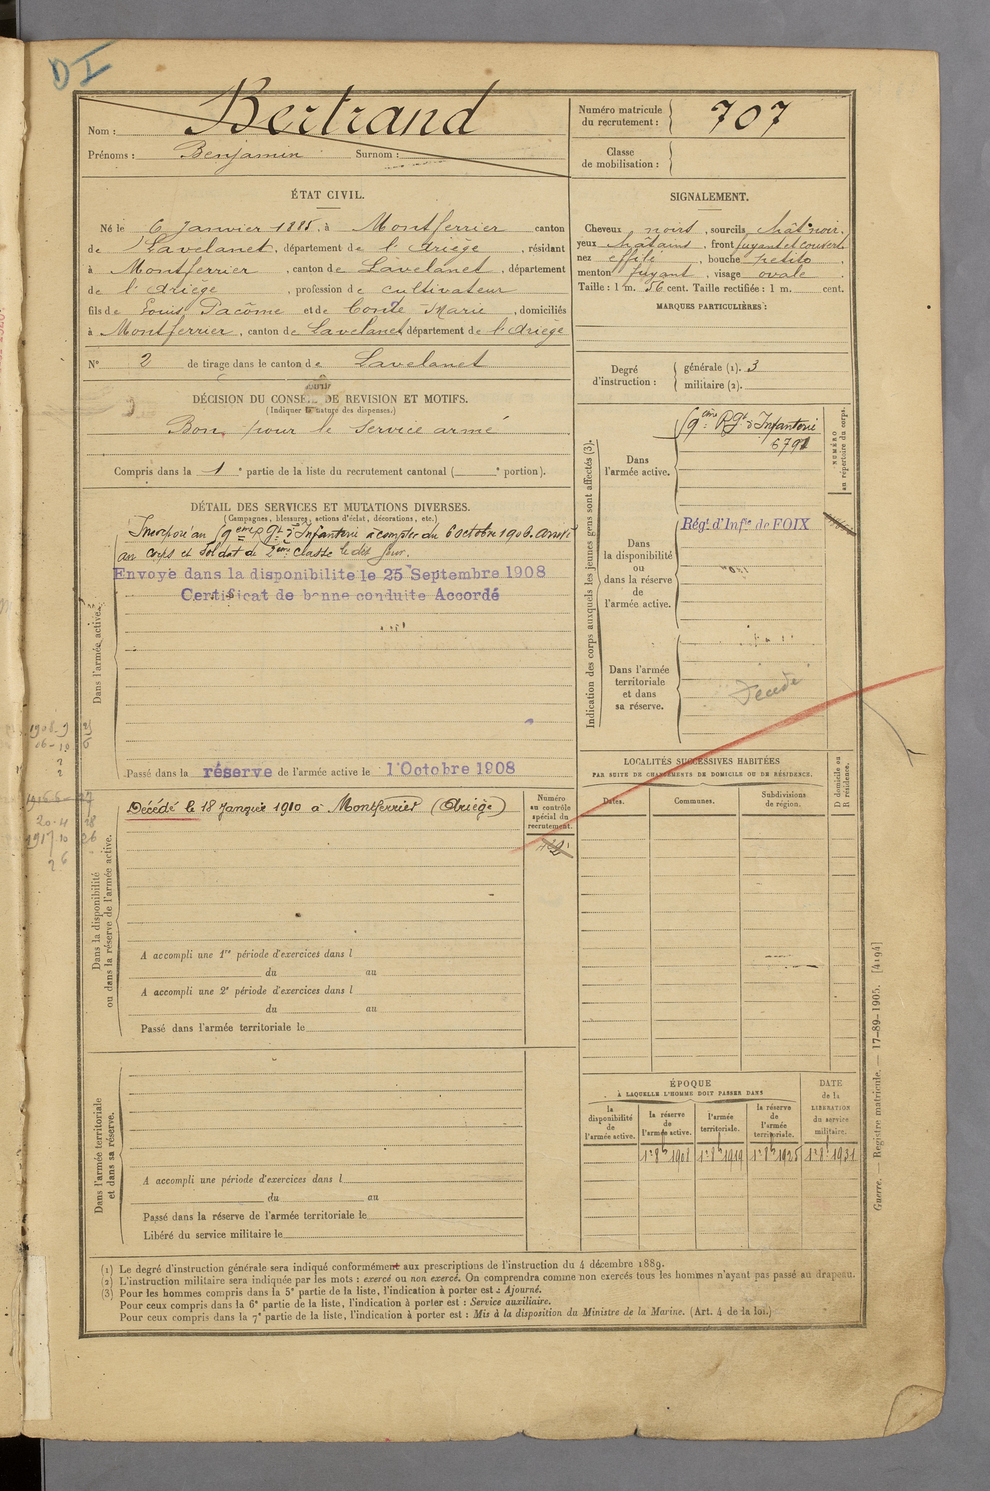 DI
Nom : Bertrand
Prénoms : Benjamin Surnom :
Numéro matricule du recrutement : 707
Classe de mobilisation :
ÉTAT CIVIL.
Né le 6 Janvier 1885, à Montferrier canton
de Lavelanet, département de l'Ariège, résidant
à Montferrier, canton de Lavelanet, département
de l'Ariège, profession de cultivateur
fils de Louis Pacôme et de Conte Marie, domiciliés
à Montferrier, canton de Lavelanet département de l'Ariège
N° 2 de tirage dans le canton de Lavelanet
SIGNALEMENT.
Cheveux noirs, sourcils chât. noir,
yeux châtains, front fuyant et couvert
nez effilé, bouche petite,
menton fuyant, visage ovale.
Taille : 1 m. 56 cent. Taille rectifiée : 1 m. cent.
MARQUES PARTICULIÈRES :
Degré d'instruction : générale (1). 3
militaire (2).
DÉCISION DU CONSEIL DE REVISION ET MOTIFS.
(Indiquer la nature des dispenses.)
Bon pour le Service armé
Compris dans la 1e partie de la liste du recrutement cantonal ( e portion).
DÉTAIL DES SERVICES ET MUTATIONS DIVERSES.
(Campagnes, blessures, actions d'éclat, décorations, etc.)
Dans l'armée active.
Incorporé au 59ème Rgt d'Infanterie à compter du 6 octobre 1906. arrivé
au corps et soldat de 2ème classe le dit jour.
Envoyé dans la disponibilité le 25 Septembre 1908
Certificat de bonne conduite Accordé
Passé dans la réserve de l'armée active le 1 Octobre 1908
Indication des corps auxquels les jeunes gens sont affectés (3).
NUMÉRO au répertoire du corps.
Dans l'armée active.
59ème Rgt d'Infanterie
6791
Dans la disponibilité ou dans la réserve de l'armée active.
Régt d'Infie de FOIX
Dans l'armée territoriale et dans sa réserve.
Dans la disponibilité ou dans la réserve de l'armée active.
Décédé le 18 Janvier 1910 à Montferrier (Ariège)
Numéro au contrôle spécial du recrutement.
A accompli une 1re période d'exercices dans l
du au
A accompli une 2e période d'exercices dans l
du au
Passé dans l'armée territoriale le
LOCALITÉS SUCCESSIVES HABITÉES
PAR SUITE DE CHANGEMENTS DE DOMICILE OU DE RÉSIDENCE.
Dates. Communes. Subdivisions de région. D domicile ou R résidence.
Dans l'armée territoriale et dans sa réserve.
A accompli une période d'exercices dans l
du au
Passé dans la réserve de l'armée territoriale le
Libéré du service militaire le
ÉPOQUE
À LAQUELLE L'HOMME DOIT PASSER DANS
la disponibilité de l'armée active.
la réserve de l'armée active.
l'armée territoriale.
la réserve de l'armée territoriale.
DATE de la LIBÉRATION du service militaire.
1er 8bre 1908 1er 8bre 1919 1er 8bre 1925 1er 8bre 1931
Guerre. — Registre matricule. — 17-89-1905. [4194]
(1) Le degré d'instruction générale sera indiqué conformément aux prescriptions de l'instruction du 4 décembre 1889.
(2) L'instruction militaire sera indiquée par les mots : exercé ou non exercé. On comprendra comme non exercés tous les hommes n'ayant pas passé au drapeau.
(3) Pour les hommes compris dans la 5e partie de la liste, l'indication à porter est : Ajourné.
Pour ceux compris dans la 6e partie de la liste, l'indication à porter est : Service auxiliaire.
Pour ceux compris dans la 7e partie de la liste, l'indication à porter est : Mis à la disposition du Ministre de la Marine. (Art. 4 de la loi.)